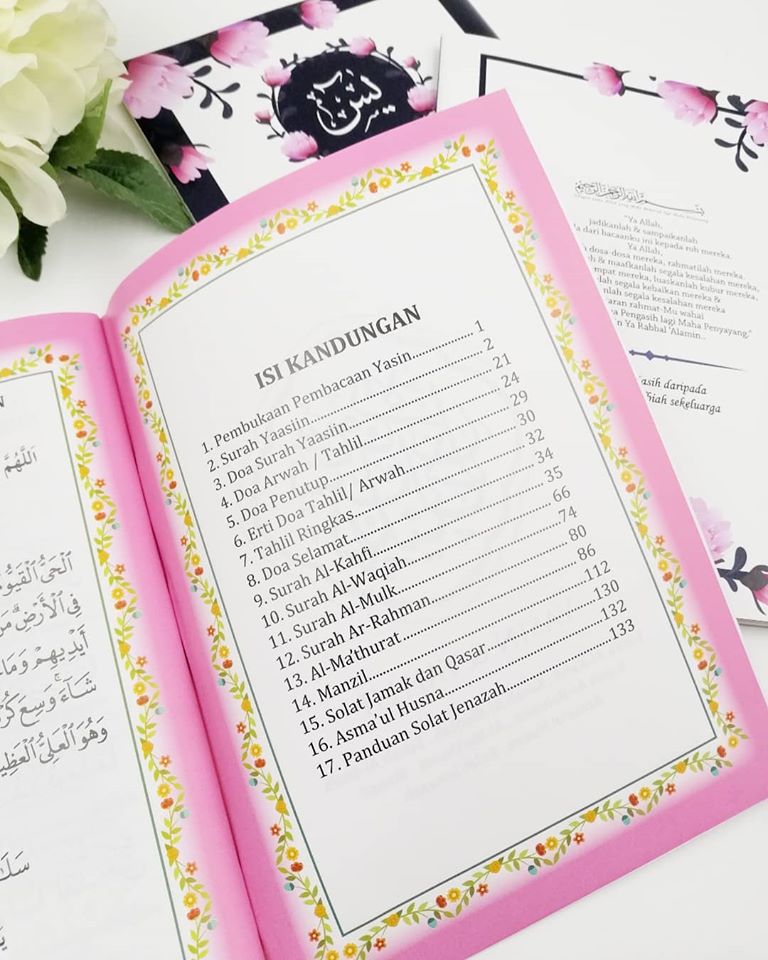 يس
ISI KANDUNGAN
1. Pembukaan Pembacaan Yasin............... 1
2. Surah Yaasiin............... 2
3. Doa Surah Yaasiin............... 21
4. Doa Arwah / Tahlil............... 24
5. Doa Penutup............... 29
6. Erti Doa Tahlil/ Arwah............... 30
7. Tahlil Ringkas............... 32
8. Doa Selamat............... 34
9. Surah Al-Kahfi............... 35
10. Surah Al-Waqiah............... 66
11. Surah Al-Mulk............... 74
12. Surah Ar-Rahman............... 80
13. Al-Ma'thurat............... 86
14. Manzil............... 112
15. Solat Jamak dan Qasar............... 130
16. Asma'ul Husna............... 132
17. Panduan Solat Jenazah............... 133
اَللّٰهُمَّ
ٱلْحَىُّ ٱلْقَيُّومُ
فِى ٱلْأَرْضِ
أَيْدِيهِمْ وَمَا
شَآءَ وَسِعَ
وَهُوَ ٱلْعَلِىُّ
بسم الله الرحمن الرحيم
"Ya Allah,
jadikanlah & sampaikanlah
dari bacaanku ini kepada ruh mereka.
Ya Allah,
dosa-dosa mereka, rahmatilah mereka,
& maafkanlah segala kesalahan mereka,
mereka, luaskanlah kubur mereka,
segala kebaikan mereka &
segala kesalahan mereka
rahmat-Mu wahai
Pengasih lagi Maha Penyayang."
Ya Rabbal 'Alamin..
daripada
sekeluarga